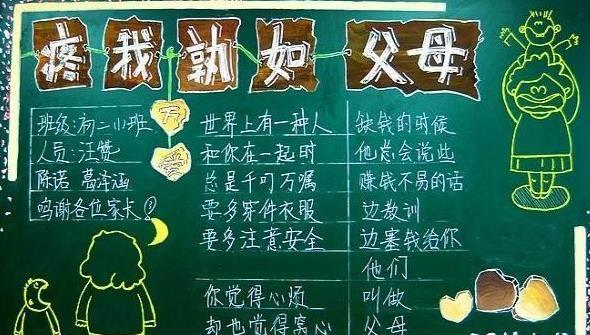 疼我孰如父母
班级:初二小班
人员:汪赞
陈诺 葛泽涵
鸣谢各位家长!
万
世界上有一种人
和你在一起时
总是千叮万嘱
要多穿件衣服
要多注意安全
你觉得心烦
却也觉得窝心
缺钱的时候
他总会说些
赚钱不易的话
边教训
边塞钱给你
他们
叫做
父母